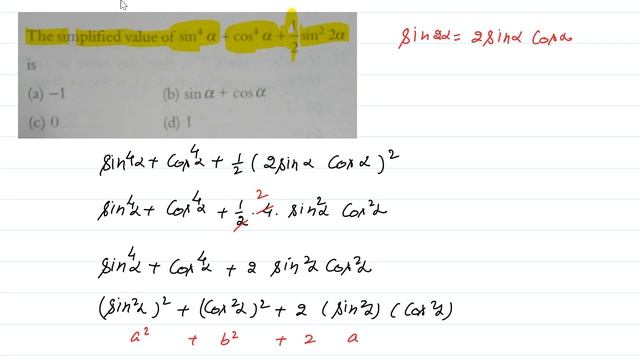 The simplified value of sin⁴ α + cos⁴ α + 1/2 sin² 2α
is
(a) −1 (b) sin α + cos α
(c) 0 (d) 1
sin2α = 2sinα cosα
sin⁴α + cos⁴α + 1/2 (2sinα cosα)²
sin⁴α + cos⁴α + 1/2 · 4 · sin²α cos²α
2
sin⁴α + cos⁴α + 2 sin²α cos²α
(sin²α)² + (cos²α)² + 2 (sin²α) (cos²α)
a² + b² + 2 a